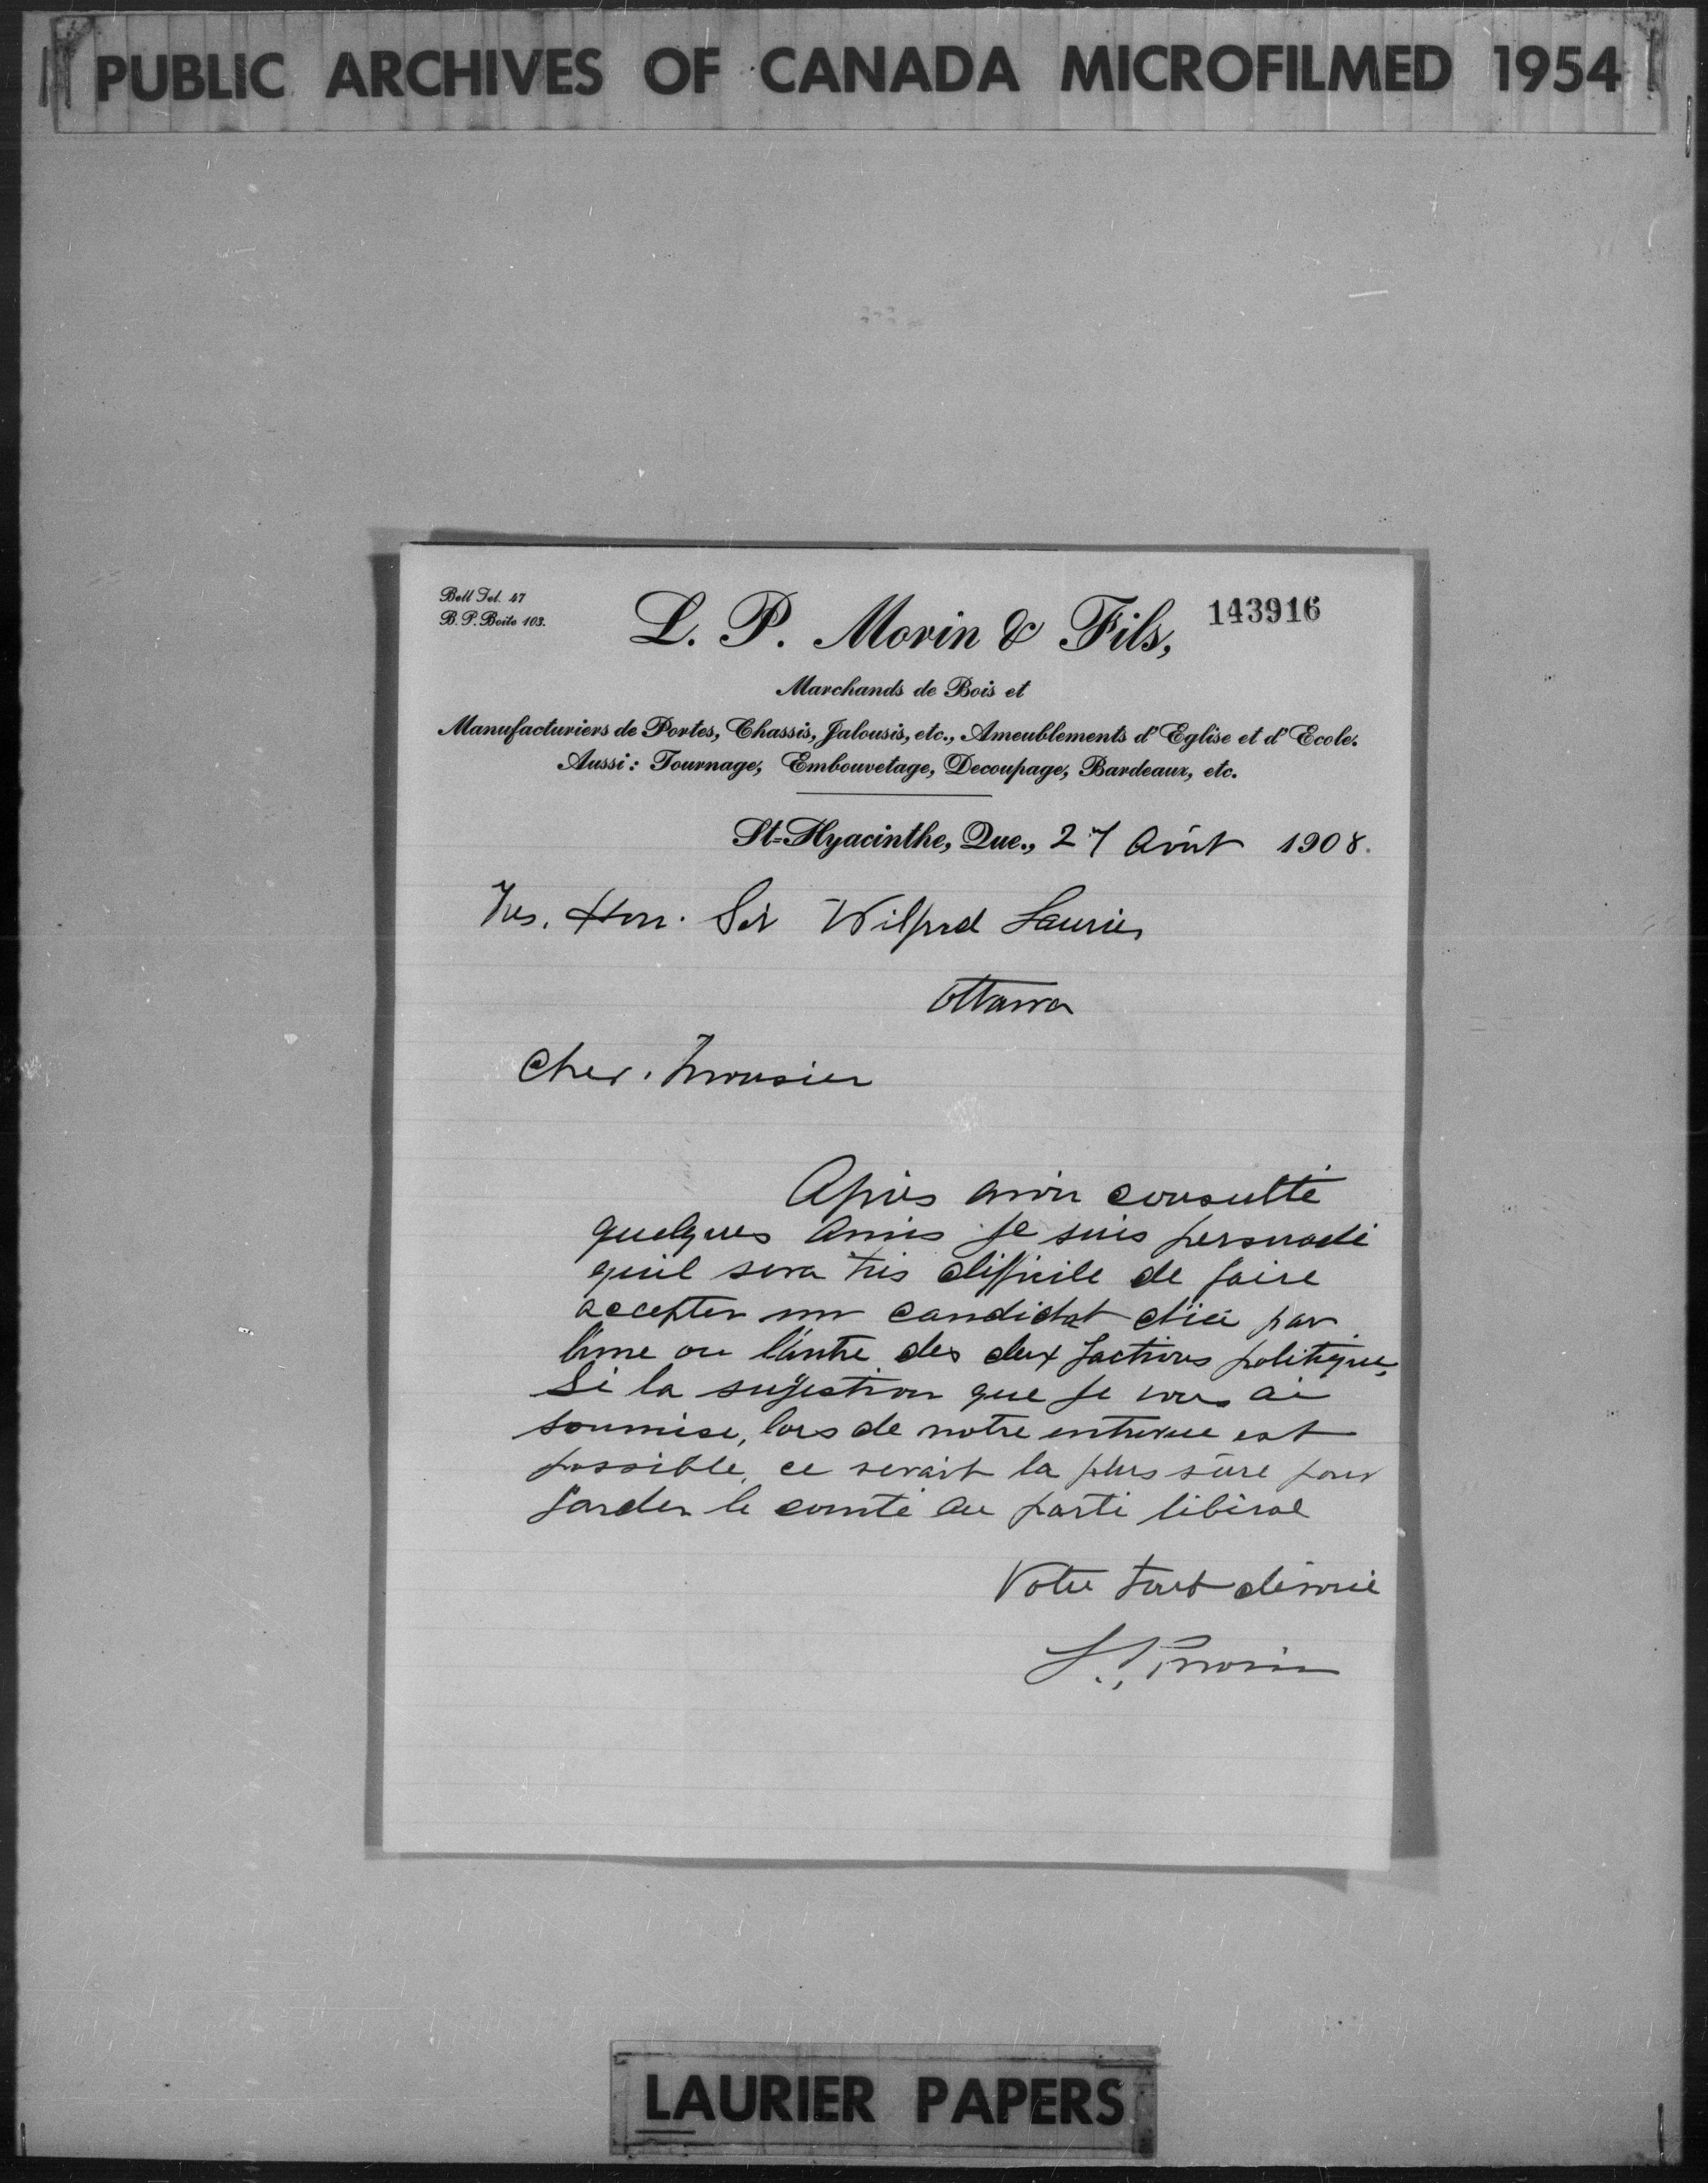 PUBLIC ARCHIVES OF CANADA MICROFILMED 1954
Bell Tel. 47
B. P. Boite 103.
L. P. Morin & Fils,
143916
Marchands de Bois et
Manufacturiers de Portes, Chassis, Jalousis, etc., Ameublements d'Eglise et d'Ecole.
Aussi: Tournage, Embouvetage, Decoupage, Bardeaux, etc.
St-Hyacinthe, Que., 27 Août 1908.
Tres. Hon. Sir Wilfrid Laurier
Ottawa
Cher. Monsieur
Après avoir consulté
quelques amis je suis persuadé
qu'il sera très difficile de faire
accepter un candidat d'ici par
l'une ou l'autre des deux factions politique,
Si la sujestion que je vous ai
soumise, lors de notre entrevue est
possible, ce serait la plus sûre pour
garder le comté au parti libéral
Votre tout dévoué
L. P. Morin
LAURIER PAPERS